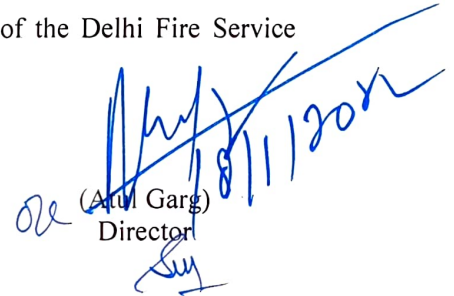 of the Delhi Fire Service
18/1/2022
(Atul Garg)
Director